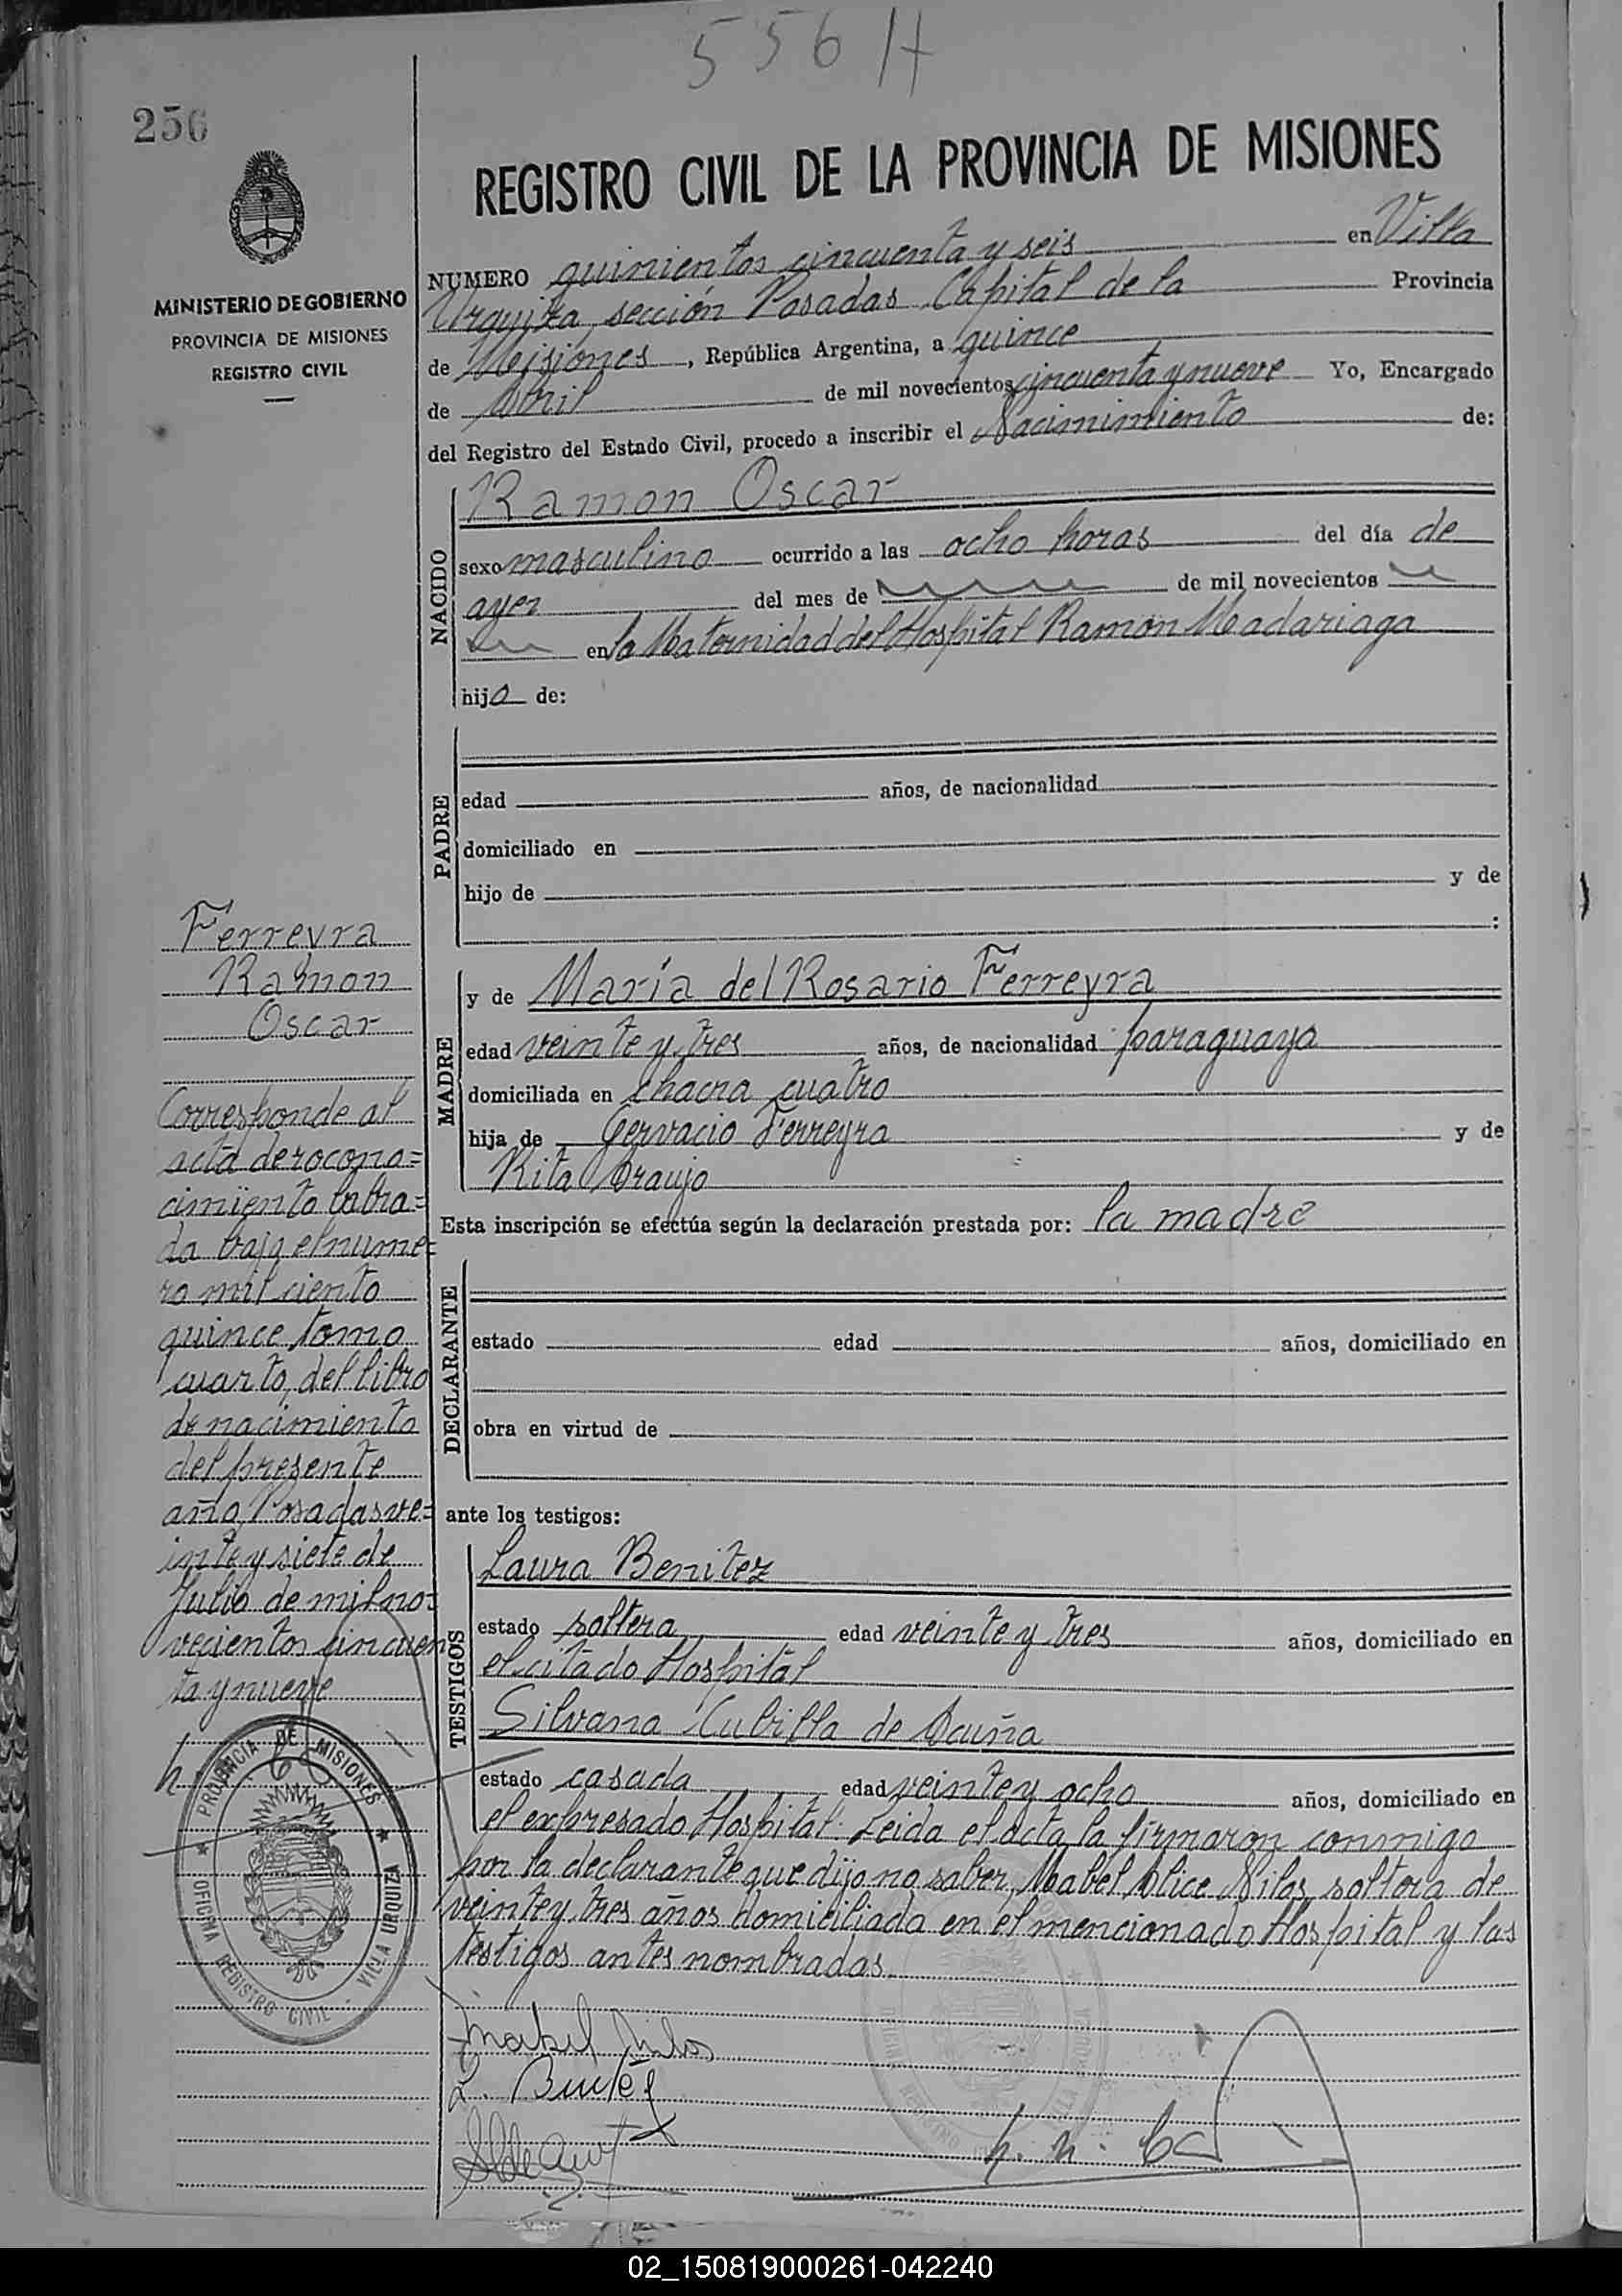 556 H
256
REGISTRO CIVIL DE LA PROVINCIA DE MISIONES
MINISTERIO DE GOBIERNO
PROVINCIA DE MISIONES
REGISTRO CIVIL
NUMERO quinientos cincuenta y seis en Villa
Urquiza, sección Posadas Capital de la Provincia
de Misiones, República Argentina, a quince
de Abril de mil novecientos cincuenta y nueve Yo, Encargado
del Registro del Estado Civil, procedo a inscribir el Nacimimiento de:
NACIDO
Ramon Oscar
sexo masculino ocurrido a las ocho horas del día de
ayer del mes de de mil novecientos
en la Maternidad del Hospital Ramon Madariaga
hijo de:
PADRE
edad años, de nacionalidad
domiciliado en
hijo de y de
:
MADRE
y de María del Rosario Ferreyra
edad veinte y tres años, de nacionalidad paraguaya
domiciliada en chacra cuatro
hija de Gervacio Ferreyra y de
Rita Araujo
Esta inscripción se efectúa según la declaración prestada por: la madre
DECLARANTE
estado edad años, domiciliado en
obra en virtud de
ante los testigos:
TESTIGOS
Laura Benitez
estado soltera edad veinte y tres años, domiciliado en
el citado Hospital
Silvana Cubilla de Acuña
estado casada edad veinte y ocho años, domiciliado en
el expresado Hospital. Leida el acta la firmaron conmigo
por la declarante que dijo no saber, Mabel Alice Silos, soltera de
veinte y tres años domiciliada en el mencionado Hospital y las
testigos antes nombradas
Mabel Silos
L. Benitez
Ferreyra
Ramon
Oscar
Corresponde al
acta de rocono=
cimiento labra=
da bajo el nume=
ro mil ciento
quince, tomo
cuarto, del libro
de nacimiento
del presente
año, Posadas ve=
inte y siete de
Julio de mil no=
vecientos cincuen
ta y nueve
PROVINCIA DE MISIONES
OFICINA REGISTRO CIVIL - VILLA URQUIZA
02_150819000261-042240